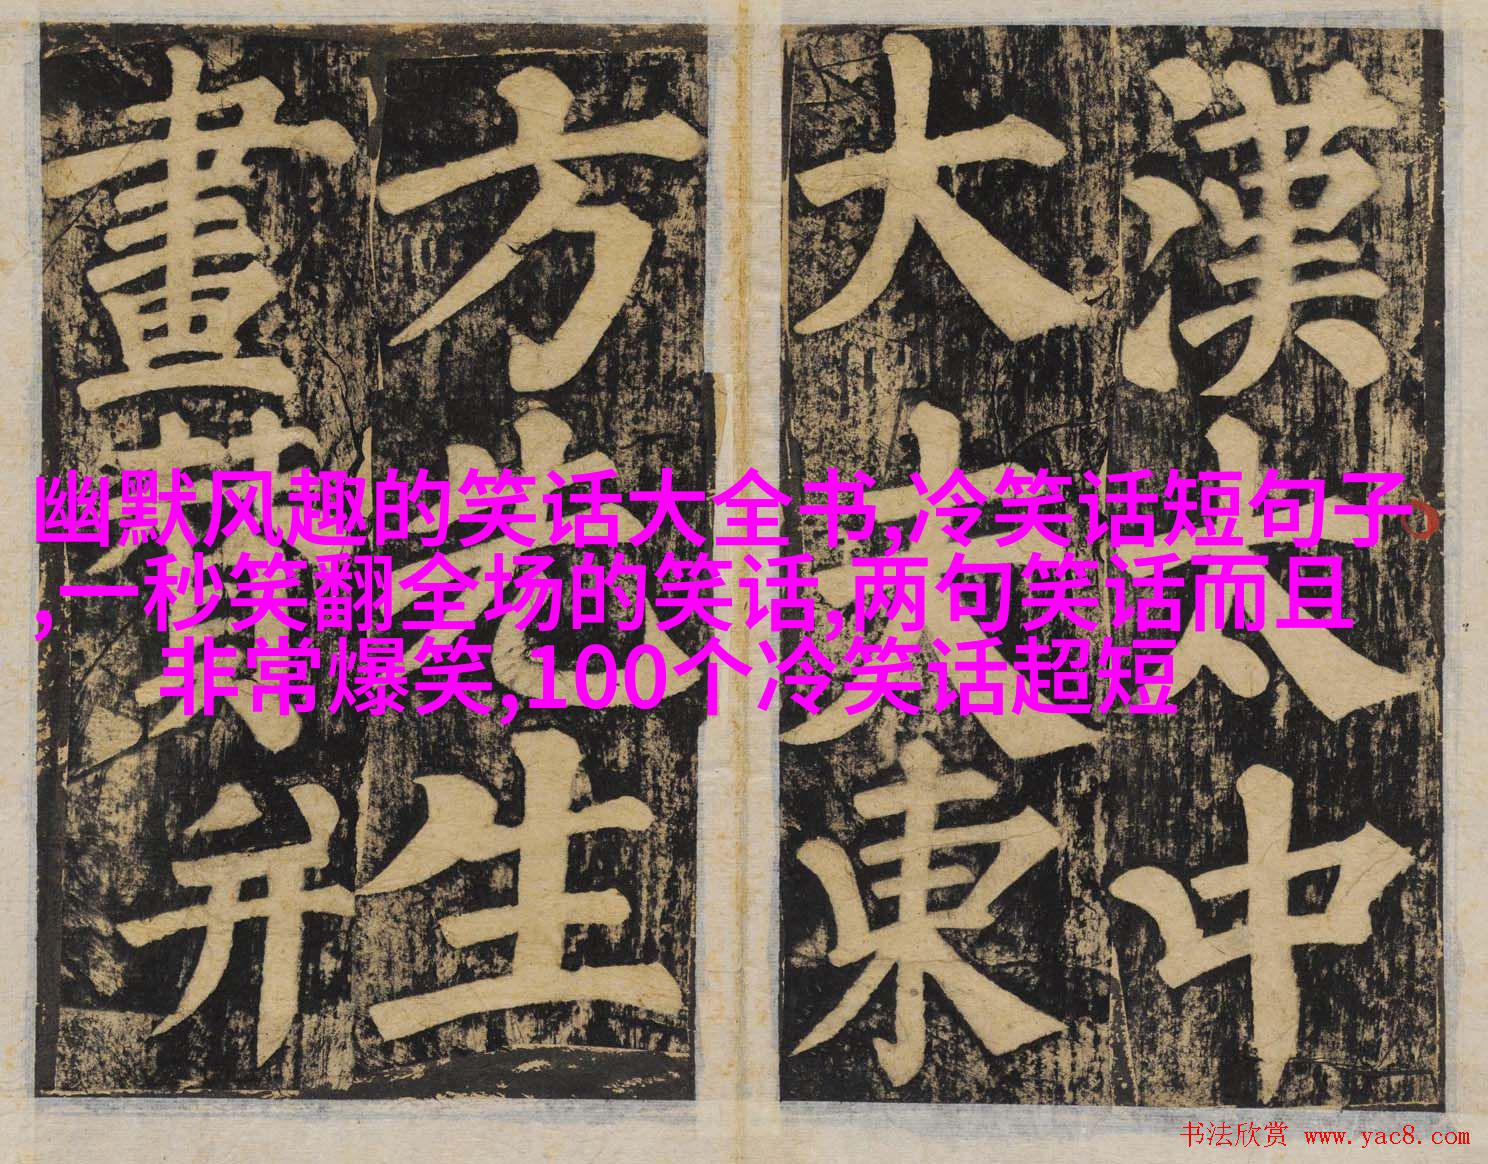 漢太中
大夫東
方先生
畫贊并
幽默风趣的笑话大全书,冷笑话短句子
,一秒笑翻全场的笑话,两句笑话而且
非常爆笑,100个冷笑话超短
书法欣赏 www.yac8.com